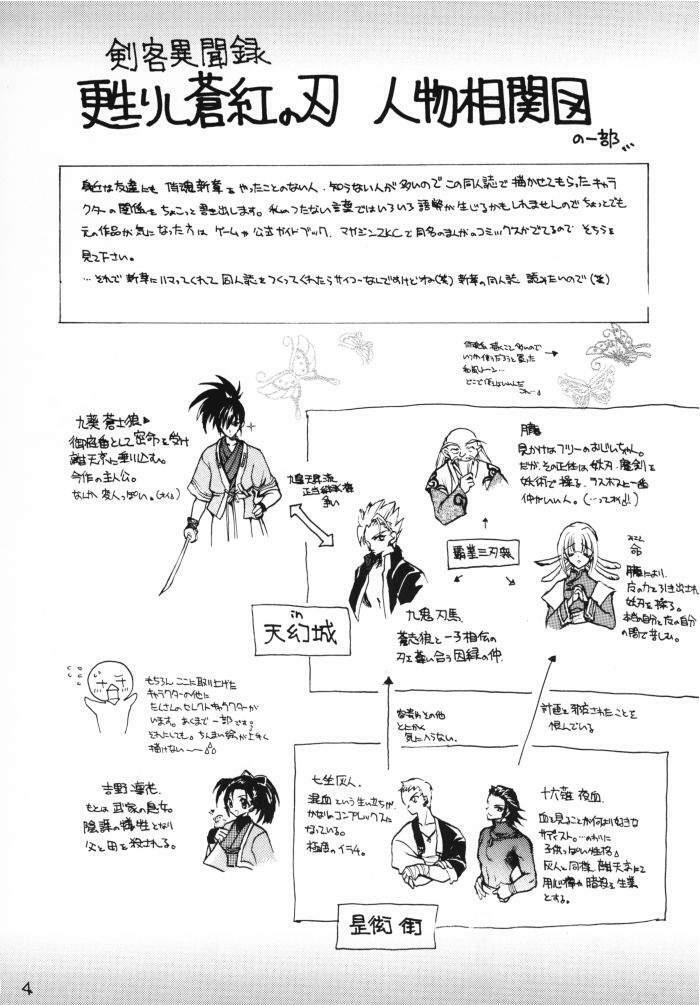 剣客異聞録
甦りし蒼紅の刃 人物相関図
の一部…
身近は友達にも 侍魂新章をやったことのない人、知らない人が多いのでこの同人誌で描かせてもらったキャラ
クターの関係をちょこっと書き出します。私のつたない言葉ではいろいろ誤解が生じるかもしれませんのでちょっとでも
元の作品が気になった方は ゲームや公式ガイドブック、マガジンZKCで同名のまんがのコミックスがでてるので そちらを
見て下さい。
…それで新章にハマってくれて 同人誌をつくってくれたらサイコーなんですけどね(笑) 新章の同人誌 読みたいので(笑)
九葵 蒼志狼
御庭番として 密命を受け
離天京に乗り込む。
今作の主人公。
なんか 変人っぽい。
正当継承者
争い
朧
見かけはフリーのおじいちゃん。
だが、その正体は妖刃、魔剣を
妖術で操る、ラスボスと一番
仲がいい人。
覇業三刃衆
命
朧により、
負の力を引き出され
妖刃を操る。
本当の自分と負の自分
の間で苦しむ。
九鬼 刃馬
蒼志狼と 一子相伝の
刃を奪い合う 因縁の仲。
in
天幻城
もちろん ここに取り上げた
キャラクターの他に
たくさんのセレクトキャラクターが
います。あくまで一部です。
とにかく
気に入らない。
計画を邪魔されたことを
恨んでいる
吉野 凜花
もとは 武家の息女。
陰謀の犠牲となり
父と母を殺される。
七坐 灰人
混血という生い立ちが
かなりのコンプレックスに
なっている。
極度のイラチ。
十六夜 夜血
血を見ることが何より好きな
サディスト。…のわりに
子供っぽい性格
灰人と同様 離天京にて
用心棒や暗殺を生業
とする。
是衒 街
4